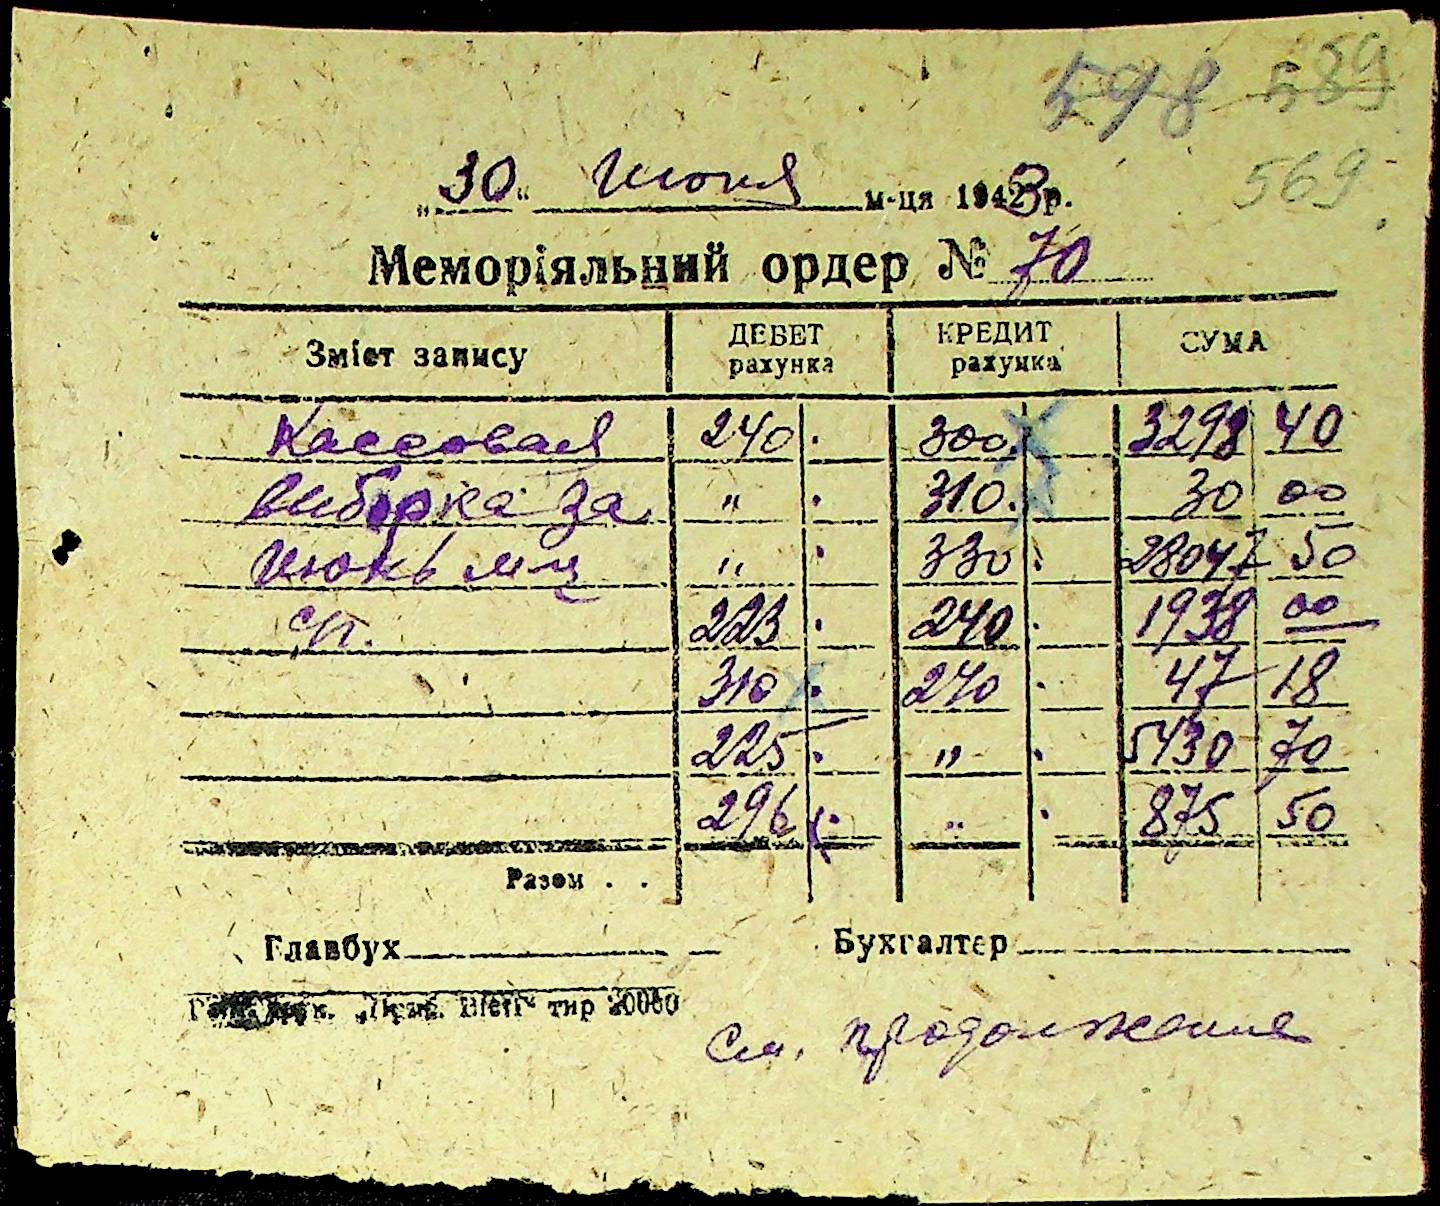 598 589
569
"30" Июня м-ця 1943 р.
Меморіяльний ордер № 70
Зміст запису ДЕБЕТ рахунка КРЕДИТ рахунка СУМА
Кассовая 240 300 3298 40
выборка за " 310 30 00
Июнь м-ц " 330 28047 50
с/г. 223 240 1938 00
310 240 47 18
225 " 5430 70
296 " 875 50
Разом . .
Главбух Бухгалтер
тир 20000
См. продолжение